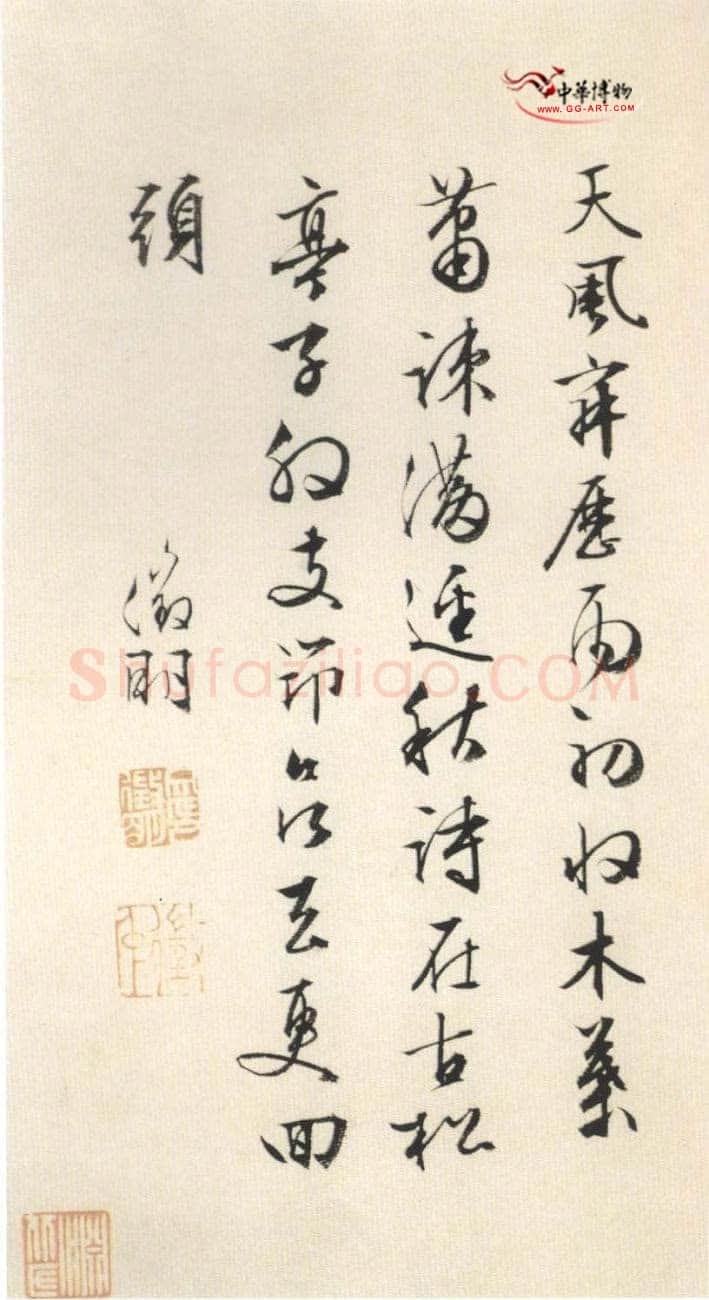 中華博物
WWW.GG-ART.COM
天風寂歷雨初收木葉
蕭疎滿逕秋詩在古松
亭子支筇欲去更回
頭
徵明
Shufaziliao.COM